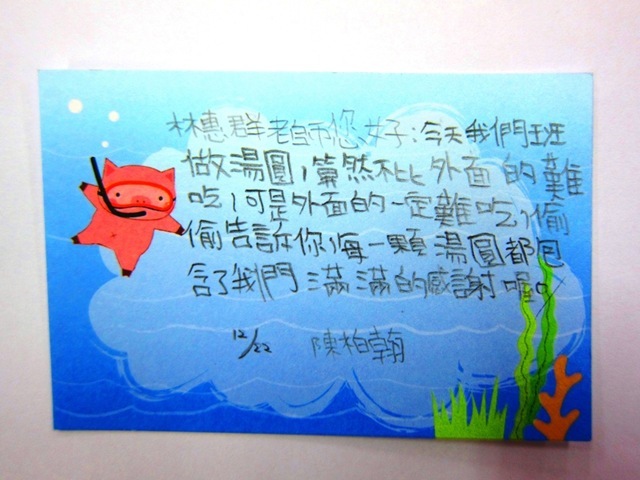 林惠群老師您好:今天我們班
做湯圓,雖然不比外面的難
吃,可是外面的一定難吃,偷
偷告訴你,每一顆湯圓都包
含了我們滿滿的感謝喔!
12/22 陳柏翰